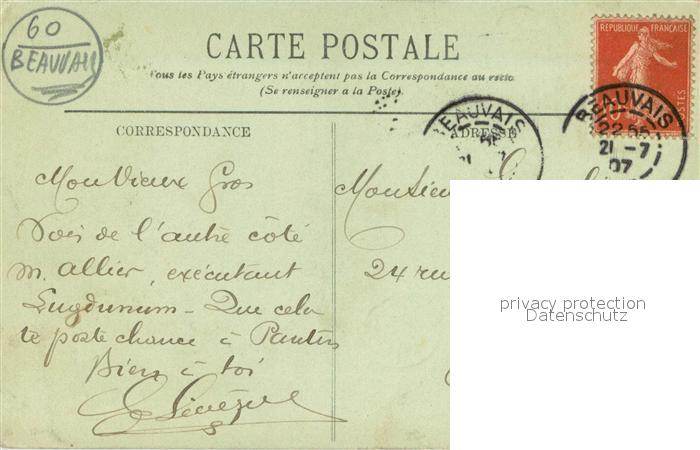 60
BEAUVAIS
CARTE POSTALE
Tous les Pays étrangers n'acceptent pas la Correspondance au recto
(Se renseigner a la Poste).
REPUBLIQUE FRANÇAISE
POSTES
BEAUVAIS
BEAUVAIS
22 55
21 -7
07
CORRESPONDANCE
ADRESSE
Mon Vieux Gros
Vois de l'autre côté
M. Allier, exécutant
Lugdunum - Que cela
te porte chance à Pantin
Bien à toi
Monsieur
24 rue
privacy protection
Datenschutz